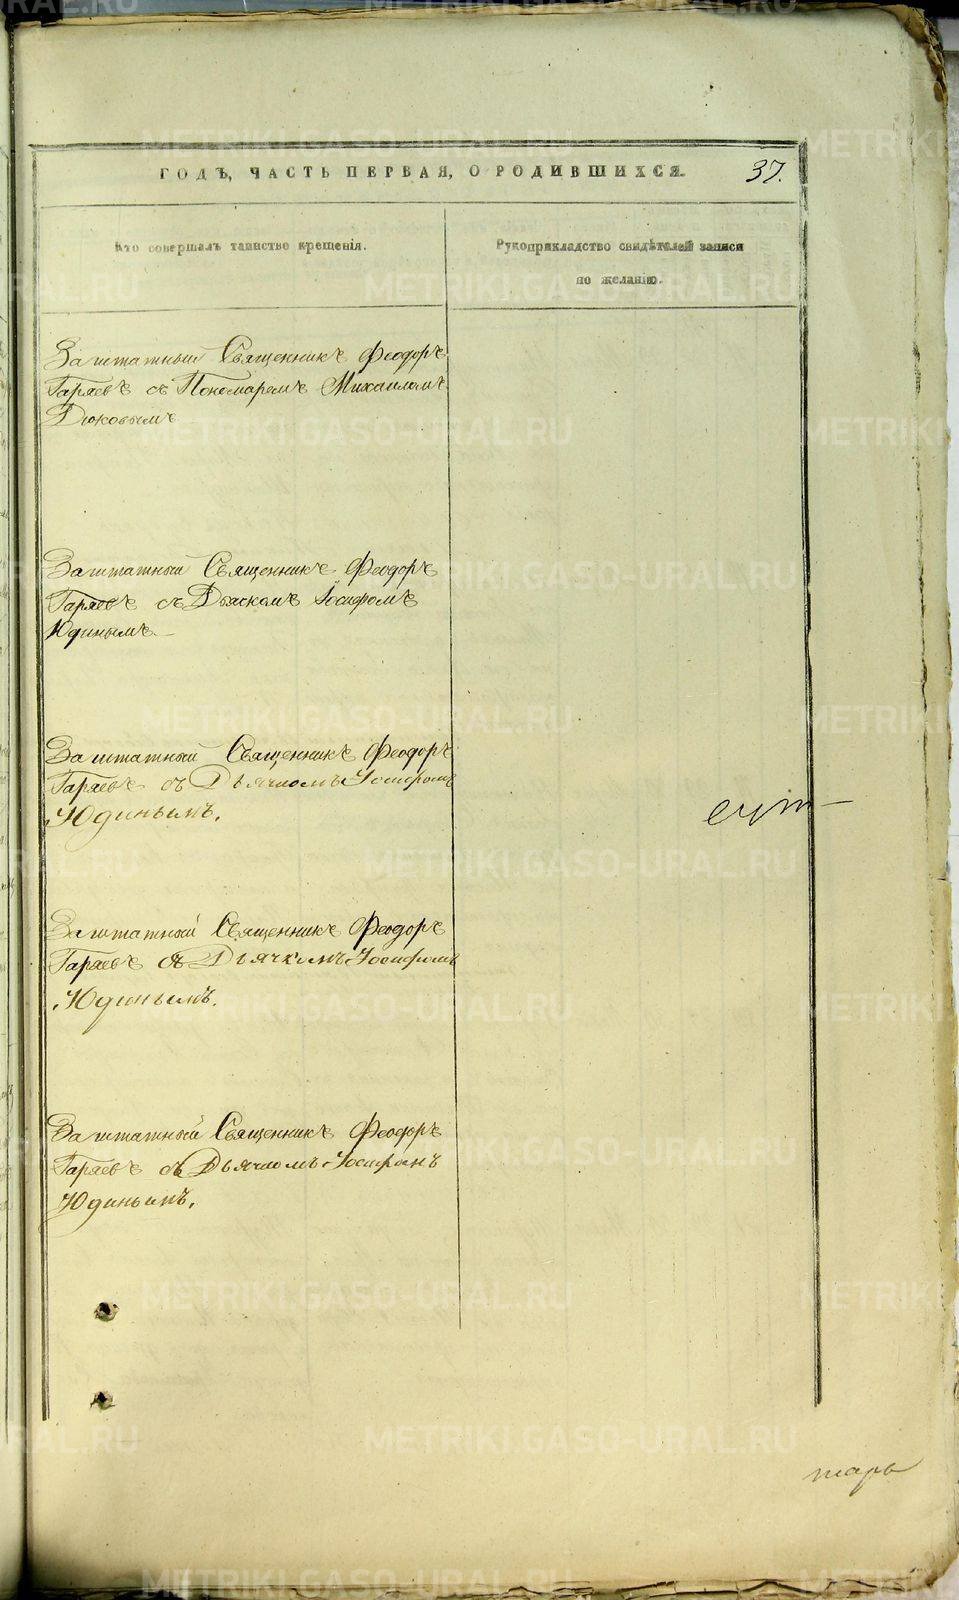 ГОДЪ, ЧАСТЬ ПЕРВАЯ, О РОДИВШИХСЯ. 37.
Кто совершалъ таинство крещенія.
Рукоприкладство свидѣтелей записи
по желанію.
Заштатный Священникъ Феодоръ
Гаряевъ съ Пономаремъ Михаиломъ
Дюковымъ
Заштатный Священникъ Феодоръ
Гаряевъ съ Дьякомъ Іосифомъ
Юдинымъ
Заштатный Священникъ Феодоръ
Гаряевъ съ Дьячкомъ Іосифомъ
Юдинымъ.
Заштатный Священникъ Феодоръ
Гаряевъ съ Дьячкомъ Іосифомъ
Юдинымъ.
Заштатный Священникъ Феодоръ
Гаряевъ съ Дьячкомъ Іосифомъ
Юдинымъ.
тарь
METRIKI.GASO-URAL.RU